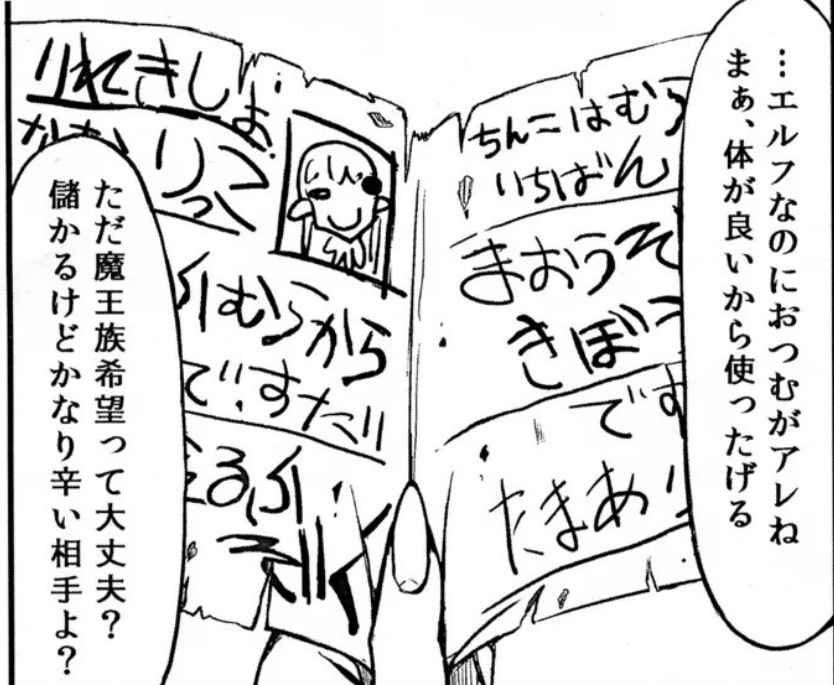 …エルフなのにおつむがアレね
まぁ、体が良いから使ったげる
ちんこはむら
いちばん
まおうぞ
きぼう
です
たまあり
りれきしょ
りっこ
むらから
ですだ!!
えるふ
ぞく
ただ魔王族希望って大丈夫?
儲かるけどかなり辛い相手よ?